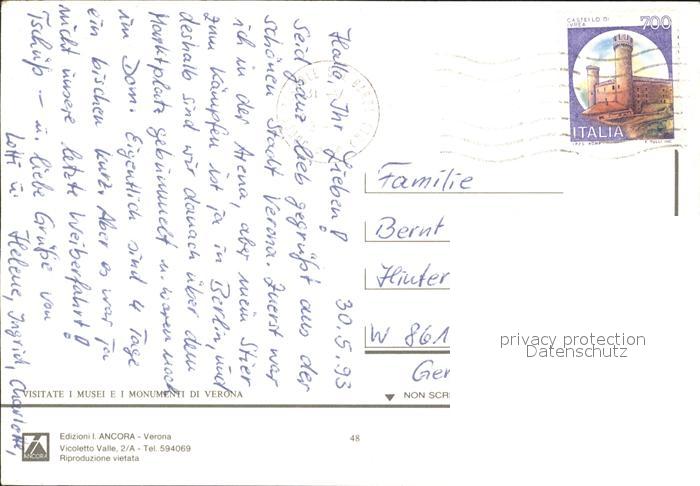 30.5.93
Hallo, Ihr Lieben!
Seid ganz lieb gegrüßt aus der
schönen Stadt Verona. Zuerst war
ich in der Arena, aber mein Stier
zum Kämpfen ist ja in Berlin, und
deshalb sind wir danach über den
Marktplatz gebummelt u. waren noch
im Dom. Eigentlich sind 4 Tage
ein bischen kurz. Aber es war ja
nicht unsere letzte Weiberfahrt!
Tschüß – u. liebe Grüße von
Lotti u. Helene, Ingrid, Charlotte,
CASTELLO DI IVREA
700
ITALIA
Familie
Bernt
Hinter
W 861
Ger
privacy protection
Datenschutz
VISITATE I MUSEI E I MONUMENTI DI VERONA
NON SCRI
ANCORA
Edizioni I. ANCORA - Verona
Vicoletto Valle, 2/A - Tel. 594069
Riproduzione vietata
48